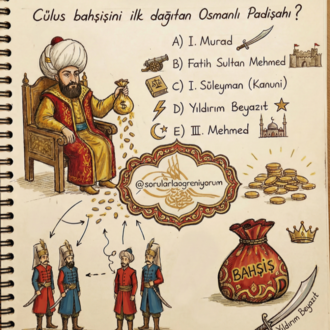 Cülus bahşişini ilk dağıtan Osmanlı Padişahı?
A) I. Murad
B) Fatih Sultan Mehmed
C) I. Süleyman (Kanuni)
D) Yıldırım Beyazıt
E) III. Mehmed
@sorularlaogreniyorum
BAHŞİŞ
Yıldırım Beyazıt